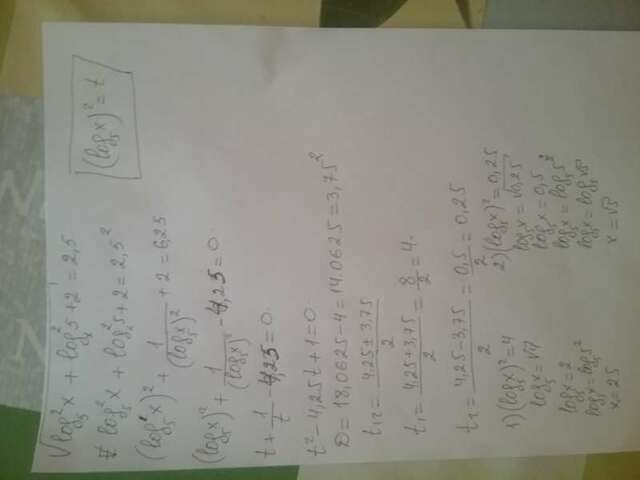 √log₅²x + logₓ²5 + 2 = 2,5
log₅²x + logₓ²5 + 2 = 2,5²
(log₅x)² = t
(log₅x)² + 1/(log₅x)² + 2 = 6,25
(log₅x)² + 1/(log₅x)² - 4,25 = 0
t + 1/t - 4,25 = 0
t² - 4,25t + 1 = 0
D = 18,0625 - 4 = 14.0625 = 3,75²
t₁,₂ = (4,25 ± 3,75)/2
t₁ = (4,25 + 3,75)/2 = 8/2 = 4
t₂ = (4,25 - 3,75)/2 = 0,5/2 = 0,25
1) (log₅x)² = 4
log₅x = √4
log₅x = 2
log₅x = log₅5²
x = 25
2) (log₅x)² = 0,25
log₅x = √0,25
log₅x = 0,5
log₅x = log₅√5
x = √5